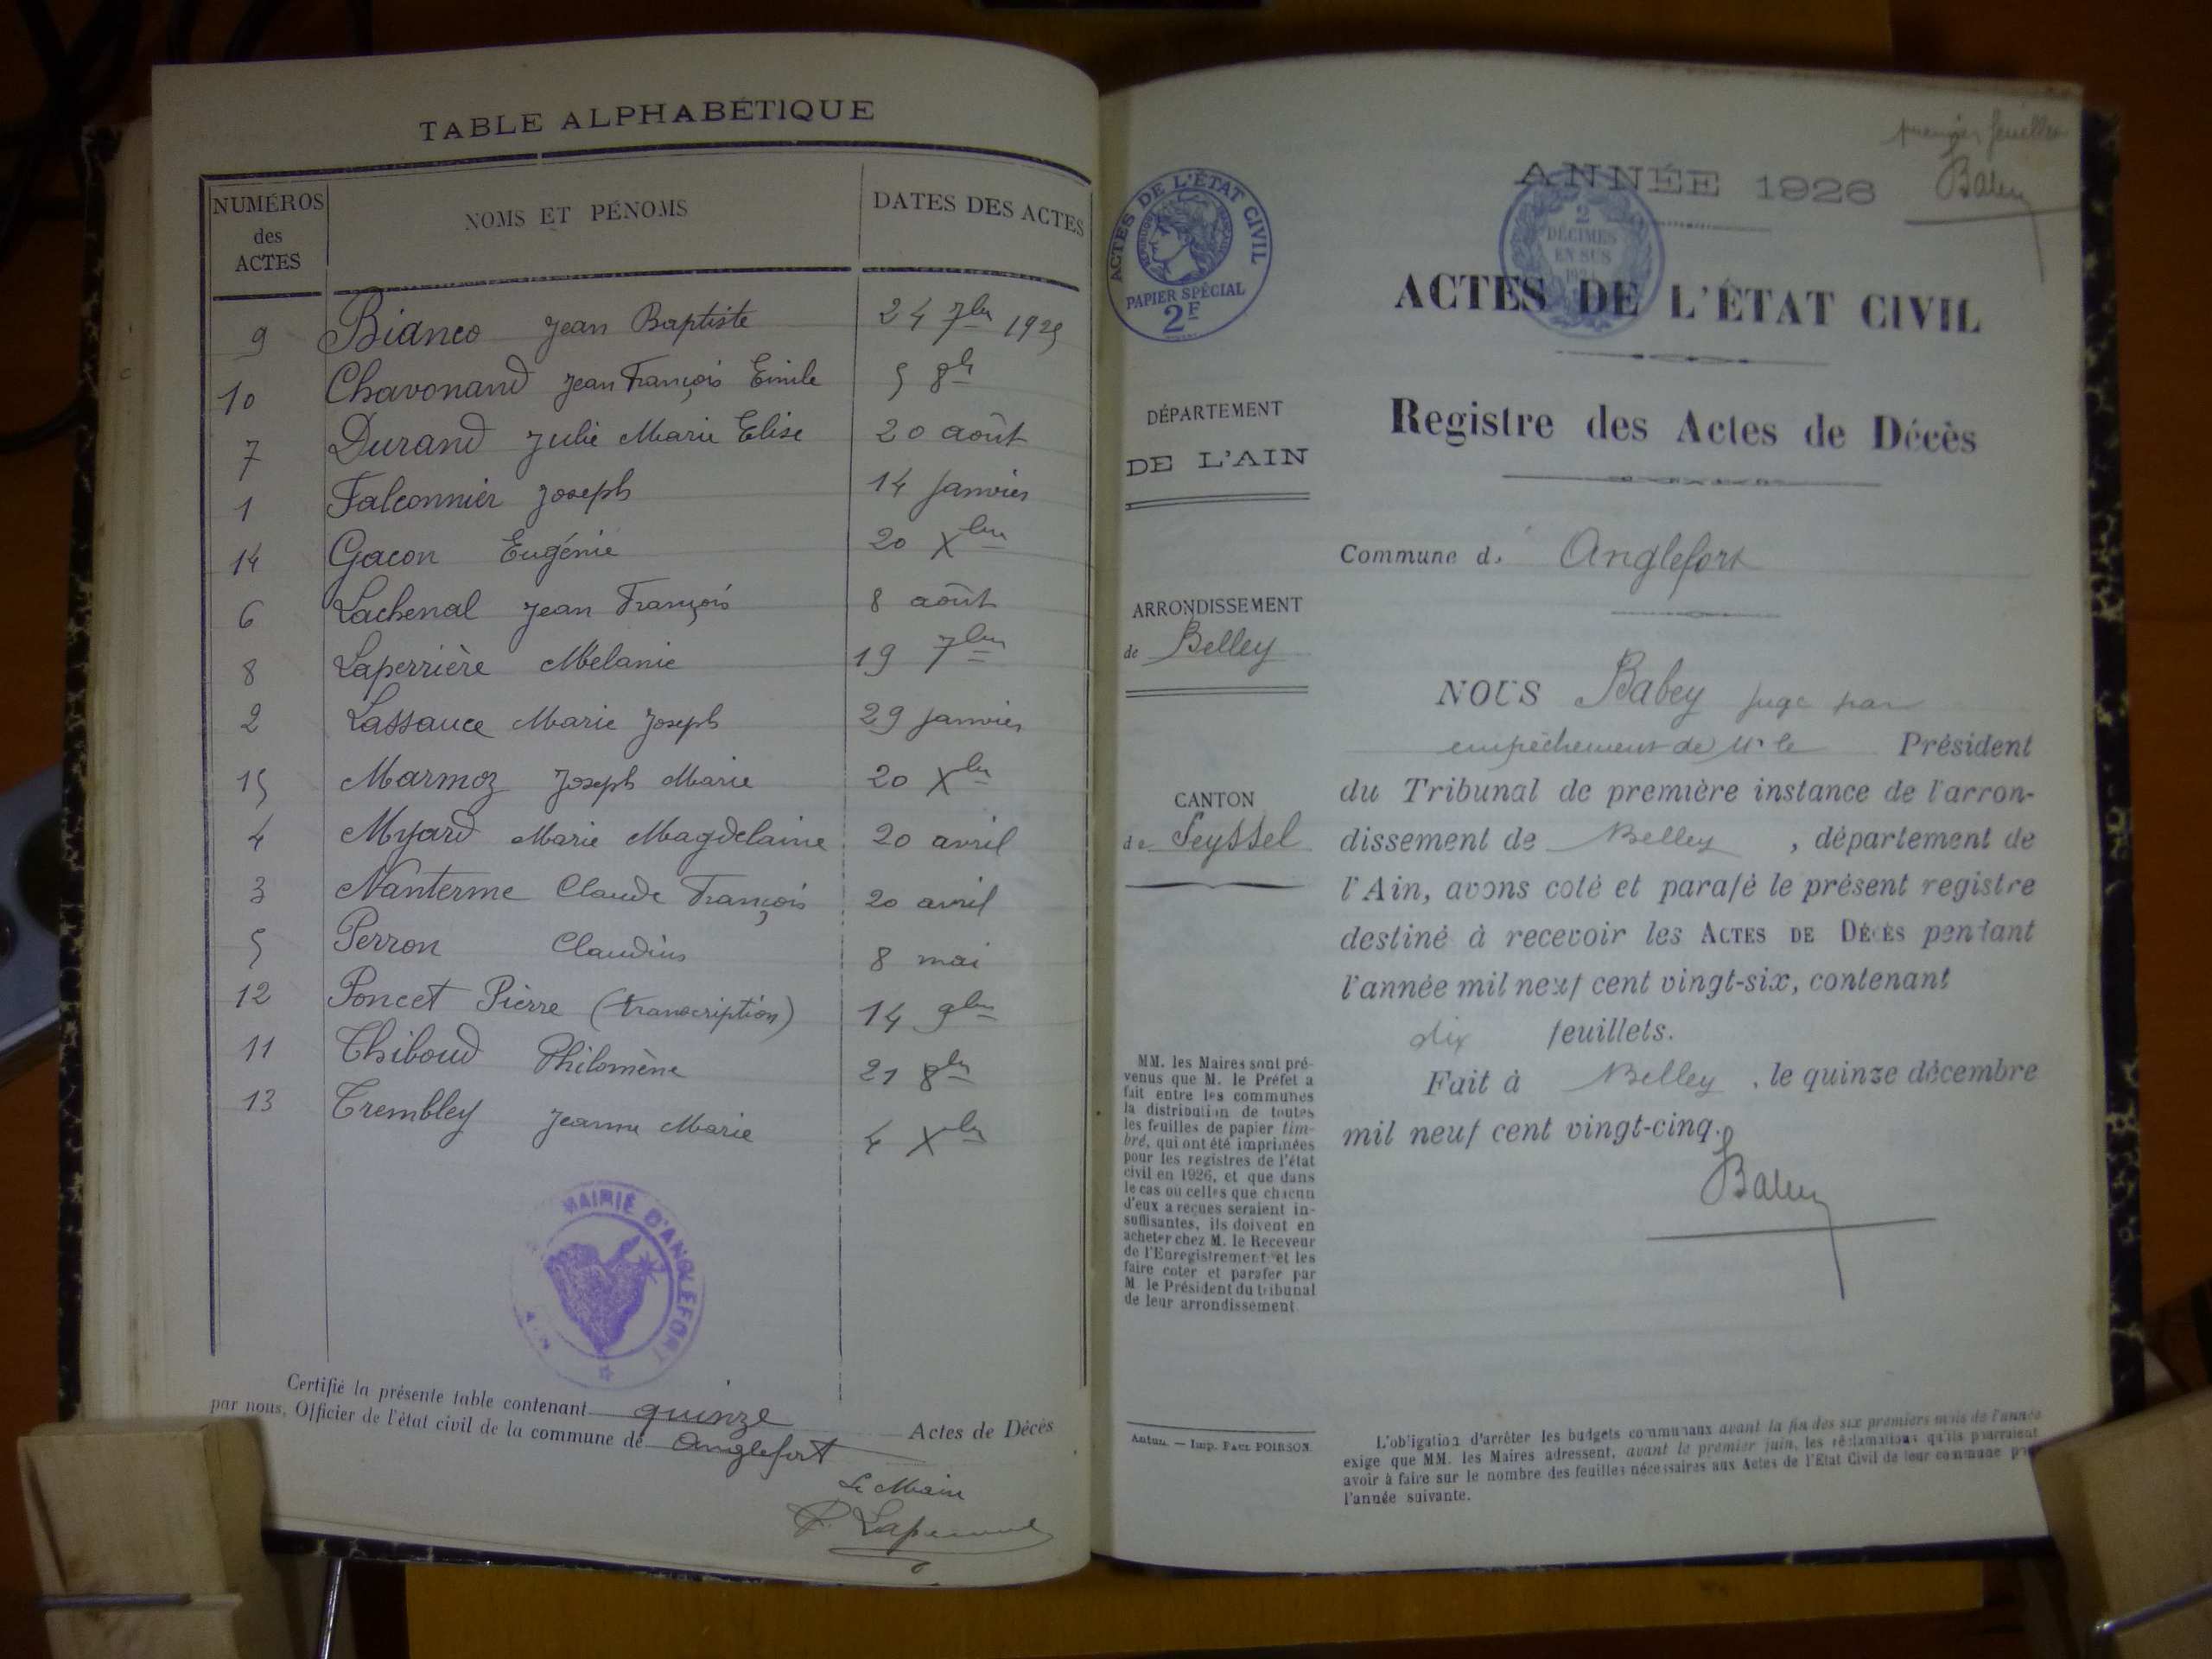 TABLE ALPHABÉTIQUE
NUMÉROS des ACTES NOMS ET PÉNOMS DATES DES ACTES
9 Bianco Jean Baptiste 24 7bre 1925
10 Chavonand Jean François Emile 5 8bre
7 Durand Julie Marie Elise 20 août
1 Falconnier Joseph 14 janvier
14 Gacon Eugénie 20 Xbre
6 Lachenal Jean François 8 août
8 Laperrière Mélanie 19 7bre
2 Lassauce Marie Joseph 29 janvier
15 Marmoz Joseph Marie 20 Xbre
4 Myard Marie Magdelaine 20 avril
3 Nanterme Claude François 20 avril
5 Perron Claudius 8 mai
12 Poncet Pierre (transcription) 14 9bre
11 Thiboud Philomène 21 8bre
13 Trembley Jeanne Marie 4 Xbre
MAIRIE D'ANGLEFORT
AIN
Certifié la présente table contenant quinze Actes de Décès
par nous, Officier de l'état civil de la commune de Anglefort
Le Maire
ACTES DE L'ÉTAT CIVIL
RÉPUBLIQUE FRANÇAISE
PAPIER SPÉCIAL
2F
DÉPARTEMENT
DE L'AIN
ARRONDISSEMENT
de Belley
CANTON
de Seyssel
MM. les Maires sont pré-
venus que M. le Préfet a
fait entre les communes
la distribution de toutes
les feuilles de papier tim-
bré, qui ont été imprimées
pour les registres de l'état
civil en 1926, et que dans
le cas où celles que chacun
d'eux a reçues seraient in-
suffisantes, ils doivent en
acheter chez M. le Receveur
de l'Enregistrement et les
faire coter et parafer par
M. le Président du tribunal
de leur arrondissement.
Autun. — Imp. PAUL POIRSON.
feuillet
Babey
ANNÉE 1926
2
DÉCIMES
EN SUS
ACTES DE L'ÉTAT CIVIL
Registre des Actes de Décès
Commune d. Anglefort
NOUS Babey juge par
empêchement de Mr le Président
du Tribunal de première instance de l'arron-
dissement de Belley, département de
l'Ain, avons coté et parafé le présent registre
destiné à recevoir les ACTES DE DÉCÈS pendant
l'année mil neuf cent vingt-six, contenant
dix feuillets.
Fait à Belley, le quinze décembre
mil neuf cent vingt-cinq.
Babey
L'obligation d'arrêter les budgets communaux avant la fin des six premiers mois de l'année
exige que MM. les Maires adressent, avant le premier juin, les réclamations qu'ils pourraient
avoir à faire sur le nombre des feuilles nécessaires aux Actes de l'État Civil de leur commune
l'année suivante.